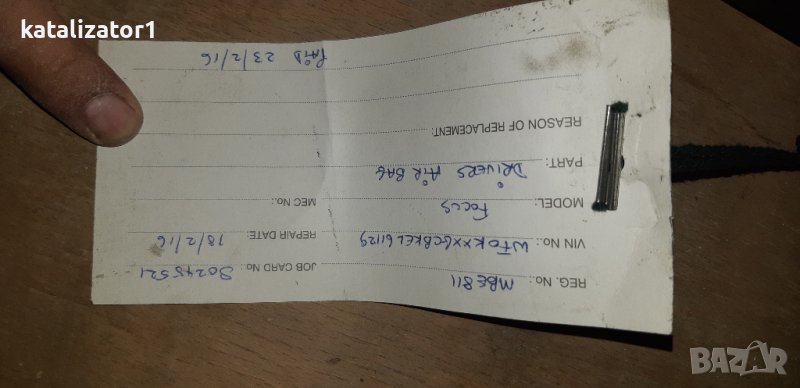 katalizator1
REG. No.: MBE811 JOB CARD No: S0245521
VIN No.: WF0KXXGCBKEL61129 REPAIR DATE: 18/2/16
MODEL: FOCUS MEC No.:
PART: DRIVERS AIR BAG
REASON OF REPLACEMENT:
PAID 23/2/16
BAZAR